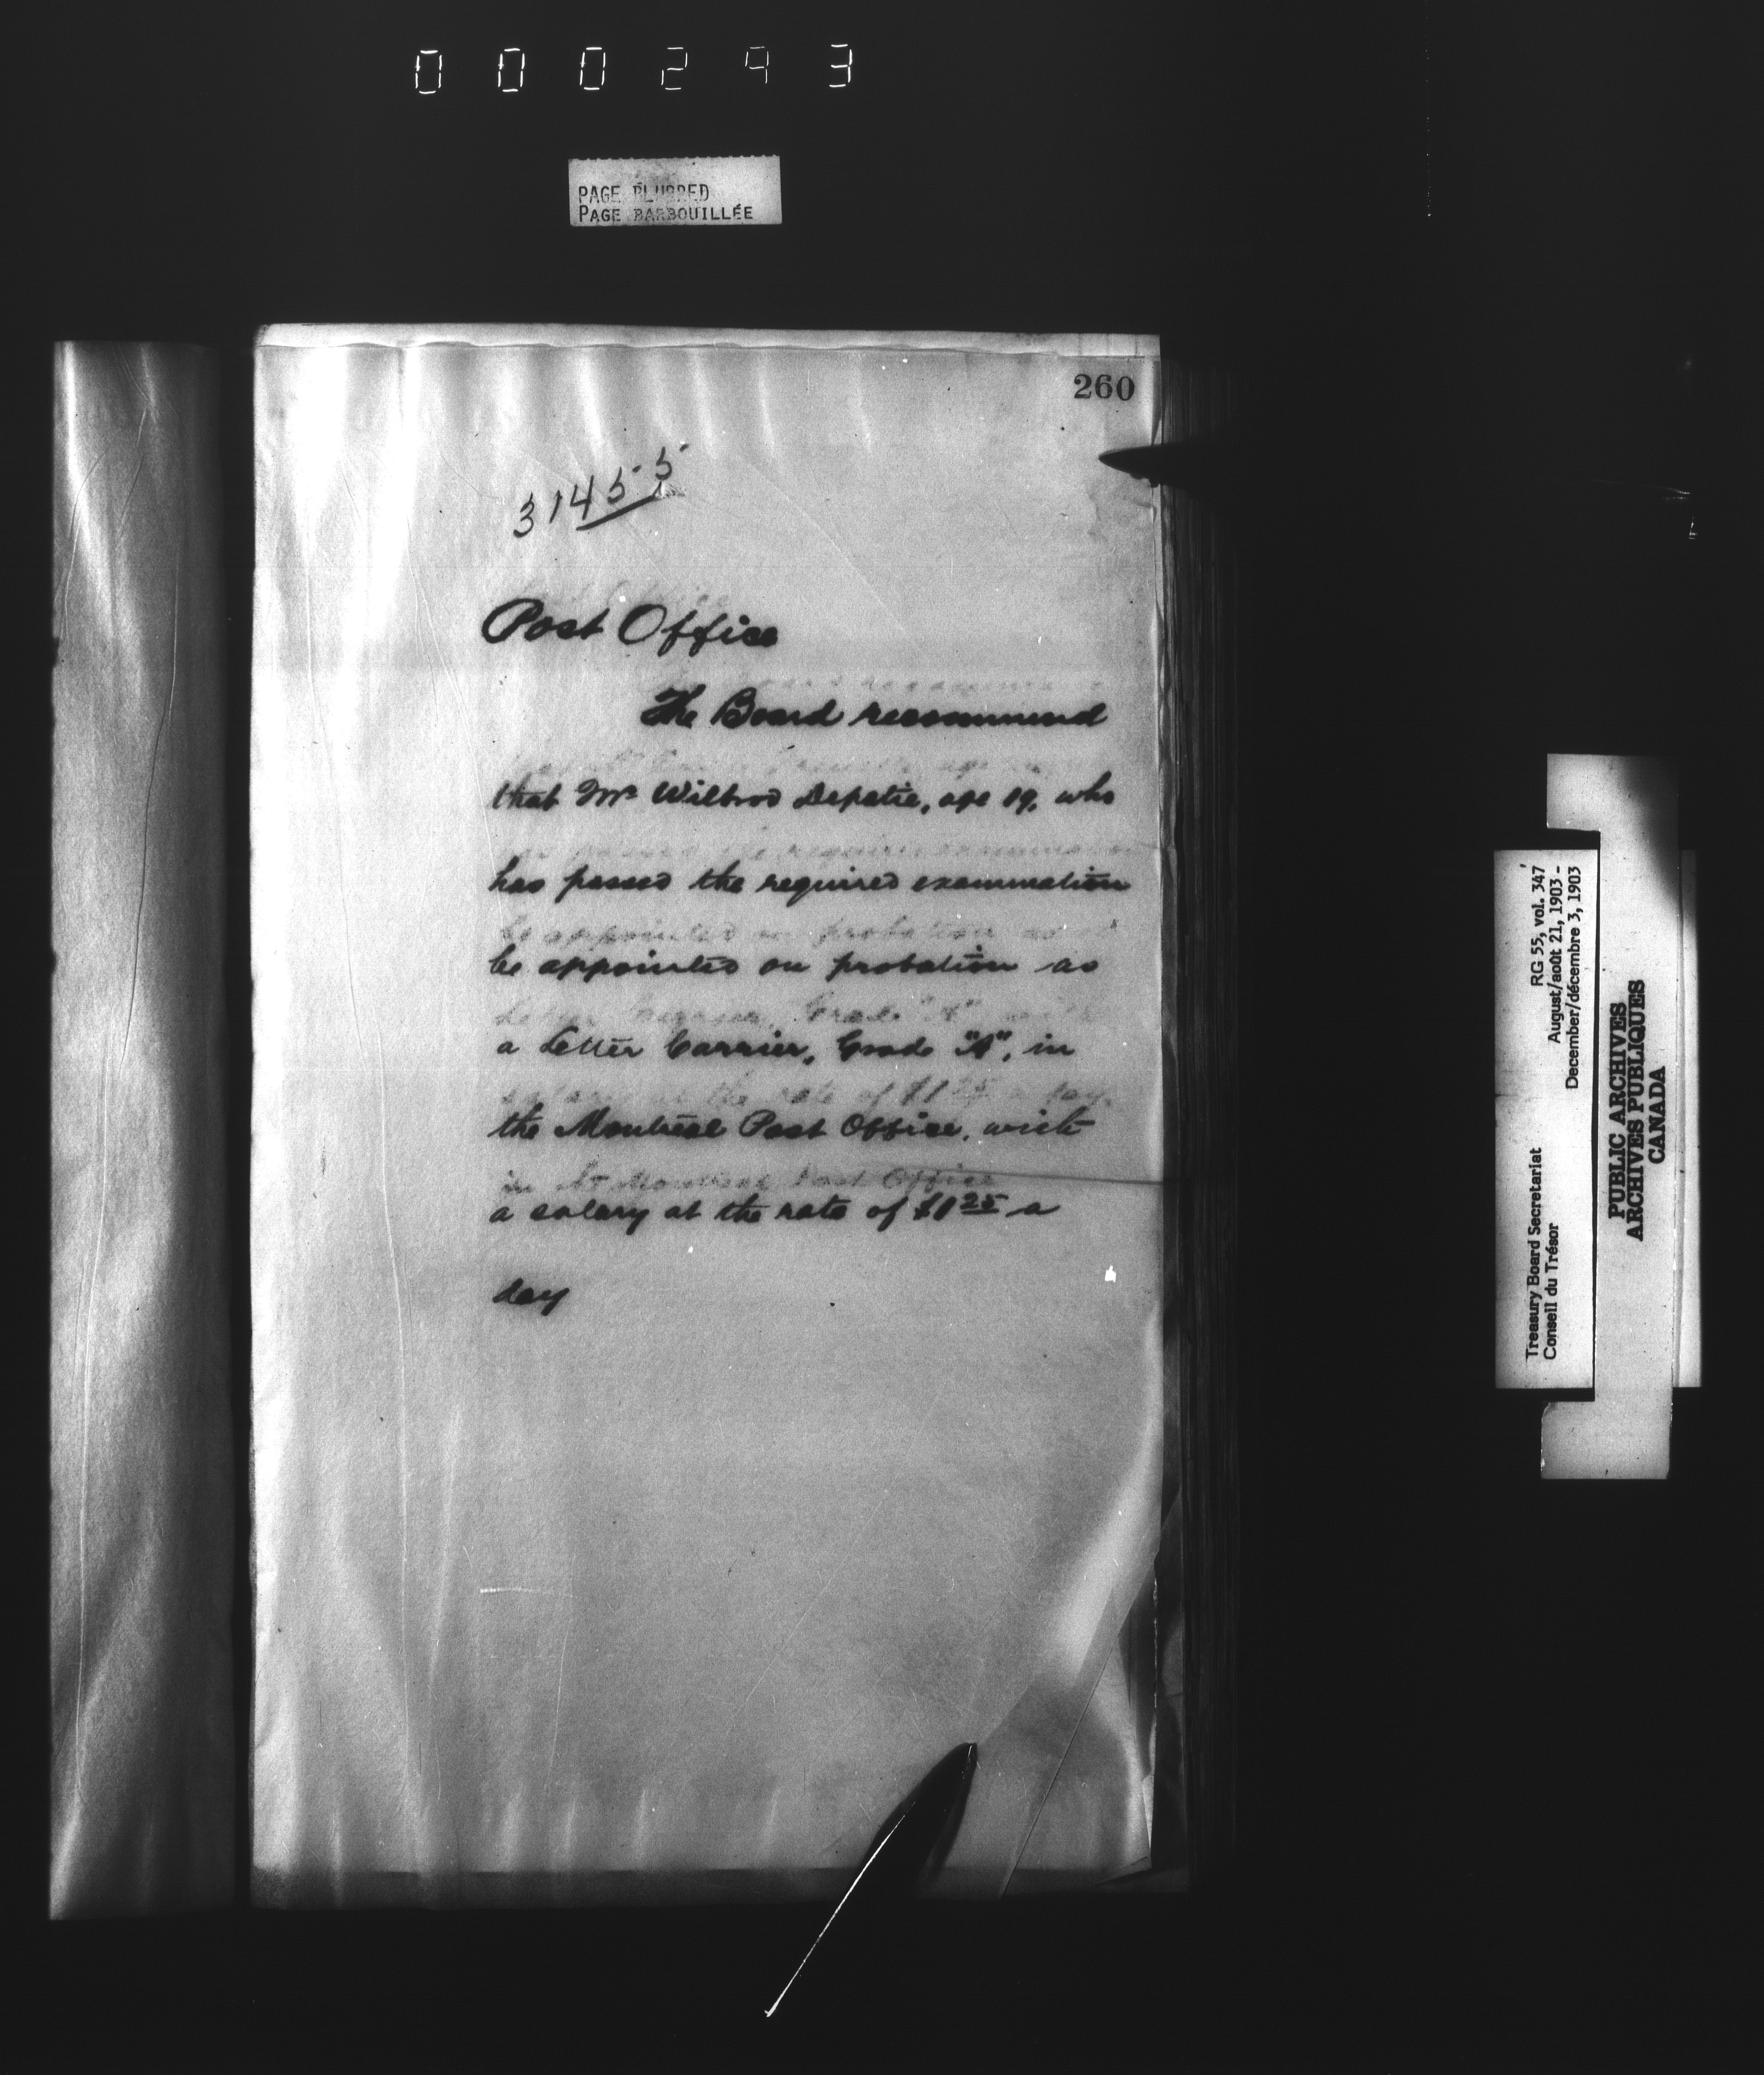 000293
PAGE BLURRED
PAGE BARBOUILLÉE
260
31455
Post Office
The Board recommend
that Mr Wilbrod Depatie, age 19, who
has passed the required examination
be appointed on probation as
a Letter Carrier, Grade "A", in
the Montreal Post Office, with
a salary at the rate of $1 25 a
day
RG 55, vol. 347
August/août 21, 1903 -
December/décembre 3, 1903
Treasury Board Secretariat
Conseil du Trésor
PUBLIC ARCHIVES
ARCHIVES PUBLIQUES
CANADA